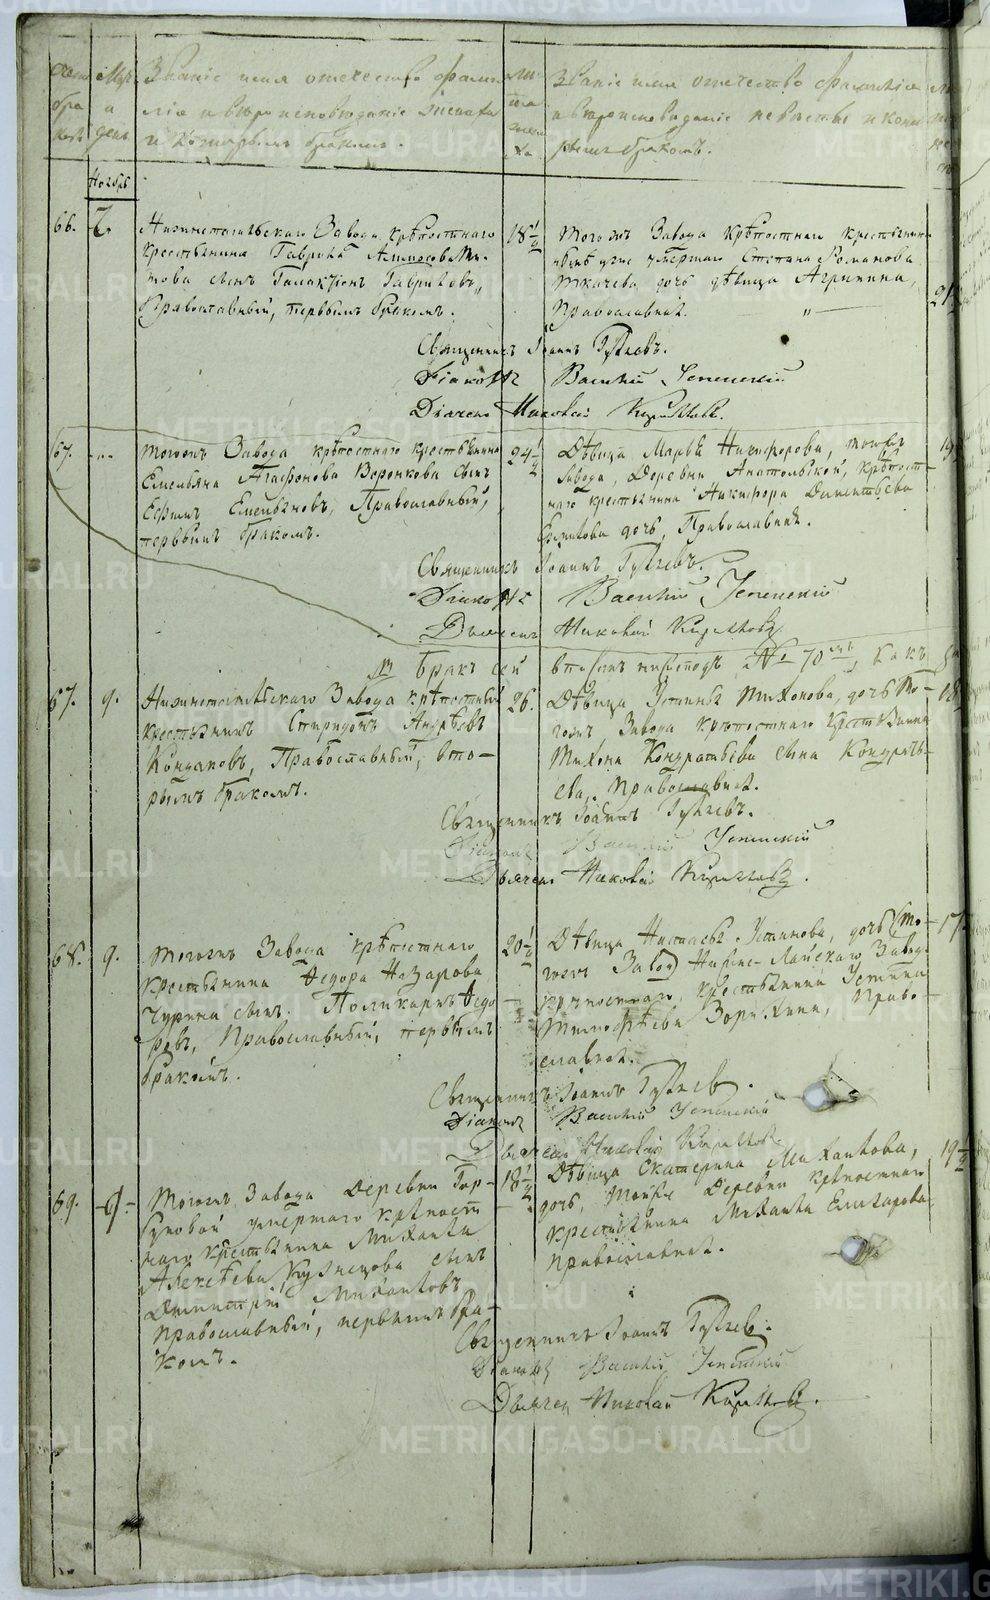 Счетъ
бра
ковъ
Мцъ
и
день
Званіе имя отечество фами
лія и вѣроисповѣданіе жениха
и которымъ бракомъ.
лѣта
жени
ха
Званіе имя отечество фамилія
и вѣроисповѣданіе невѣсты и кото
рымъ бракомъ.
Ноябрь
66.
Нижнетагильскаго Завода крѣпостнаго
крестьянина Гаврила Аммосова
това сынъ Галактіонъ Гавриловъ,
Православный, первымъ бракомъ.
18½
Того жъ Завода Крѣпостнаго крестьянина
умершаго Степана Романова
Ткачева дочь дѣвица Агрипина,
Православная.
21
Священникъ Іоаннъ Гуляевъ.
Діаконъ Василій Успенскій
Дьячекъ Николай Кирилловъ.
67.
Тогожъ Завода крѣпостнаго крестьянина
Емельяна Агафонова Воронкова сынъ
Ефимъ Емельяновъ, Православный,
первымъ бракомъ.
24½
Дѣвица Марья Никифорова, тогожъ
Завода, Деревни Анатольской, крѣпост-
наго крестьянина Никифора Дементьева
дочь, Православная.
19
Священникъ Іоаннъ Гуляевъ.
Діаконъ Василій Успенскій
Дьячекъ Николай Кирилловъ
Бракъ сей вписанъ № 70 какъ
67. 9.
Нижнетагильскаго Завода крѣпостный
крестьянинъ Спиридонъ Андреевъ
Кондаковъ, Православный, вто-
рымъ бракомъ.
26.
Дѣвица Устинья Тихонова, дочь то-
гожъ Завода крѣпостнаго крестьянина
Тихона Кондратьева сына Кондрать-
ева, Православная.
18
Священникъ Іоаннъ Гуляевъ.
Діаконъ Василій Успенскій
Дьячекъ Николай Кирилловъ.
68. 9.
Тогожъ Завода крѣпостнаго
крестьянина Федора Назарова
Чурина сынъ Поликарпъ Федо
ровъ, Православный, первымъ
бракомъ.
20½
Дѣвица Наталья Устинова, дочь то-
гожъ Завод Нижне-Лайскаго Завода
крѣпостнаго крестьянина Устина
Тимофѣева Зорихина, Право-
славная.
17
Священникъ Іоаннъ Гуляевъ.
Діаконъ Василій Успенскій
Дьячекъ Николай Кирилловъ
69.
Тогожъ Завода Деревни Гор-
буновой умершаго крѣпост
наго крестьянина Михаила
Алексѣева Кузнецова сынъ
Димитрій Михаиловъ
Православный, первымъ бра-
комъ.
18½
Дѣвица Екатерина Михаилова,
дочь тойже Деревни крѣпостнаго
крестьянина Михаила Елизарова
Православная.
19½
Священникъ Іоаннъ Гуляевъ.
Діаконъ Василій Успенскій
Дьячекъ Николай Кирилловъ.